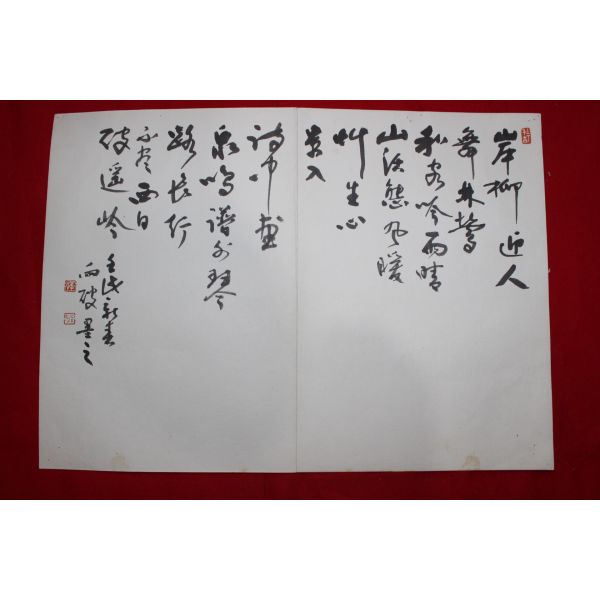 岸柳迎人
舞林鶯
和客吟雨晴
山活態風暖
艸生心
景入
詩中畫
泉鳴譜外琴
路長行
不尽西日
破遥岑
壬戌新春
向破墨之